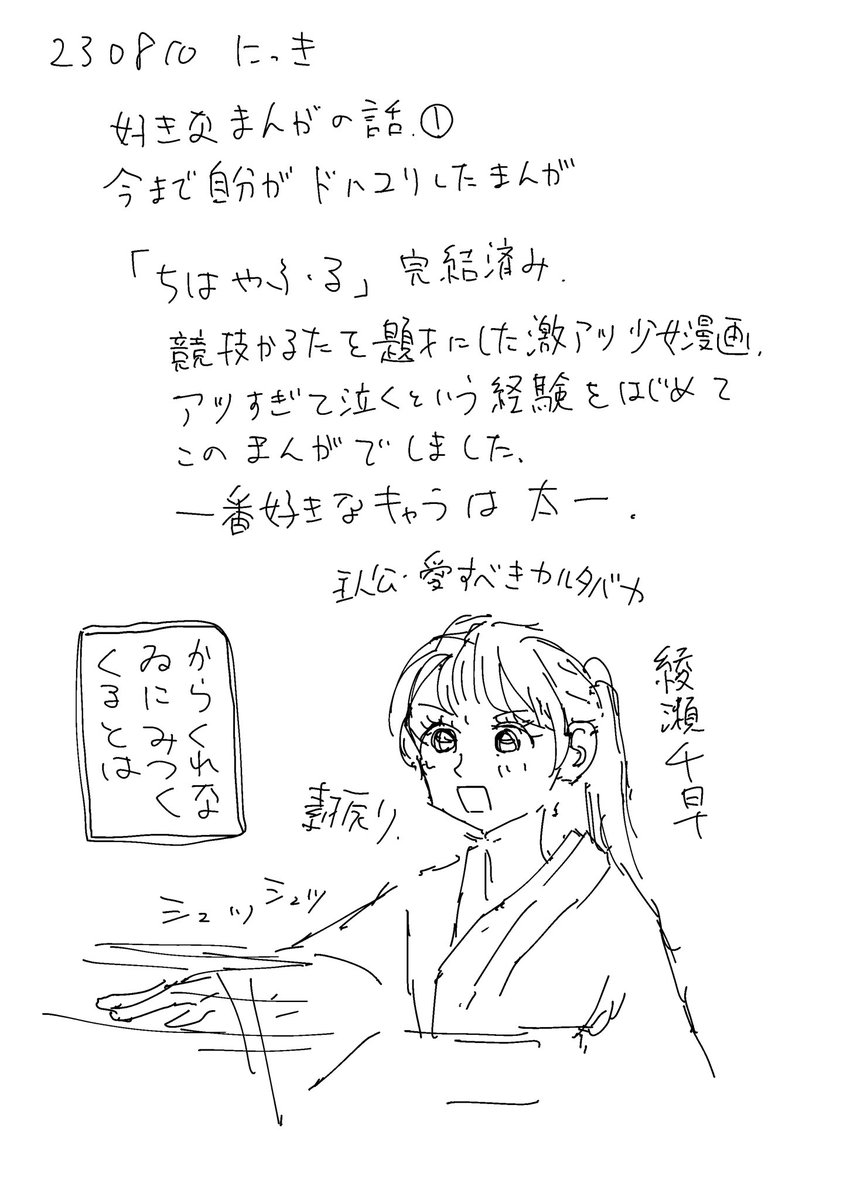 230810 にっき
好きなまんがの話.①
今まで自分がドハマりしたまんが
「ちはやふる」完結済み.
競技かるたを題材にした激アツ少女漫画.
アツすぎて泣くという経験をはじめて
このまんがでしました.
一番好きなキャラは太一.
主人公・愛すべきカルタバカ
綾瀬千早
からくれな
ゐにみつく
くるとは
素振り.
シュッシュッ